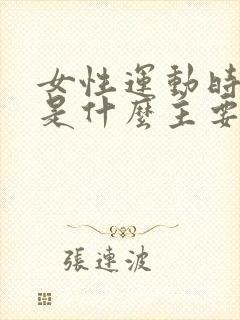 女性運動時
是什麼主要
張連波